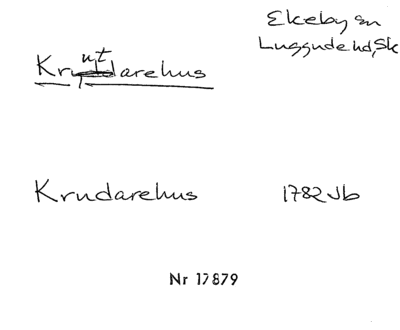 Ekeby sn
Luggude hd, Sk
ut
Krudarehus 1782 Jb
Nr 17879